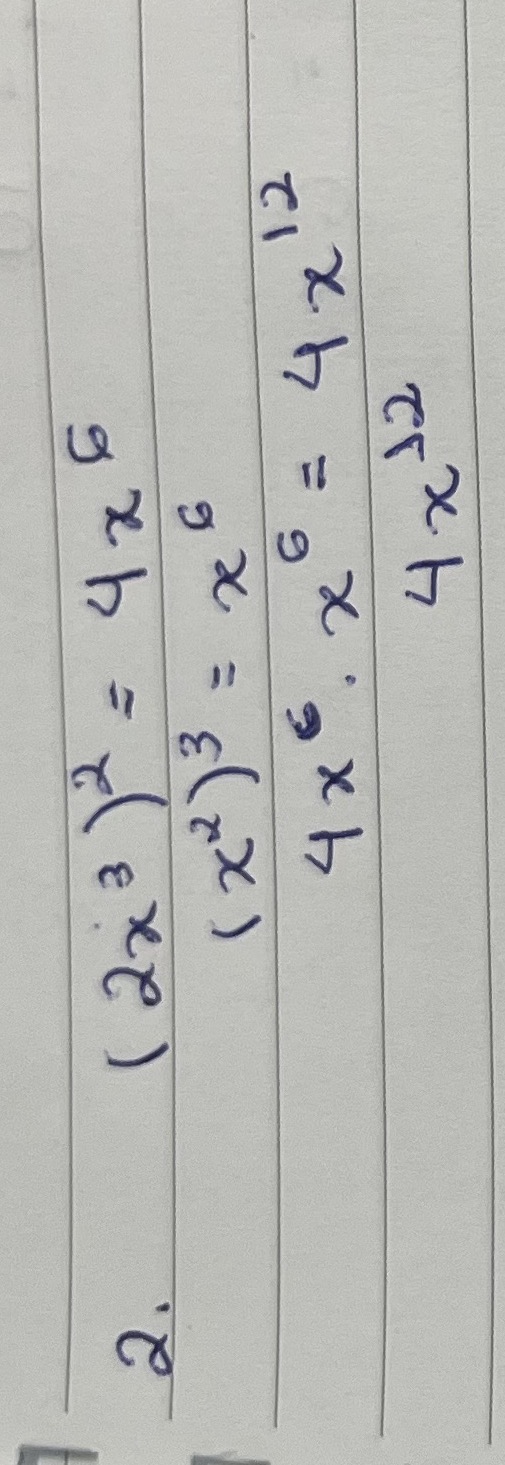 2. (2x³)² = 4x⁶
(x²)³ = x⁶
4x⁶ . x⁶ = 4x¹²
4x¹²